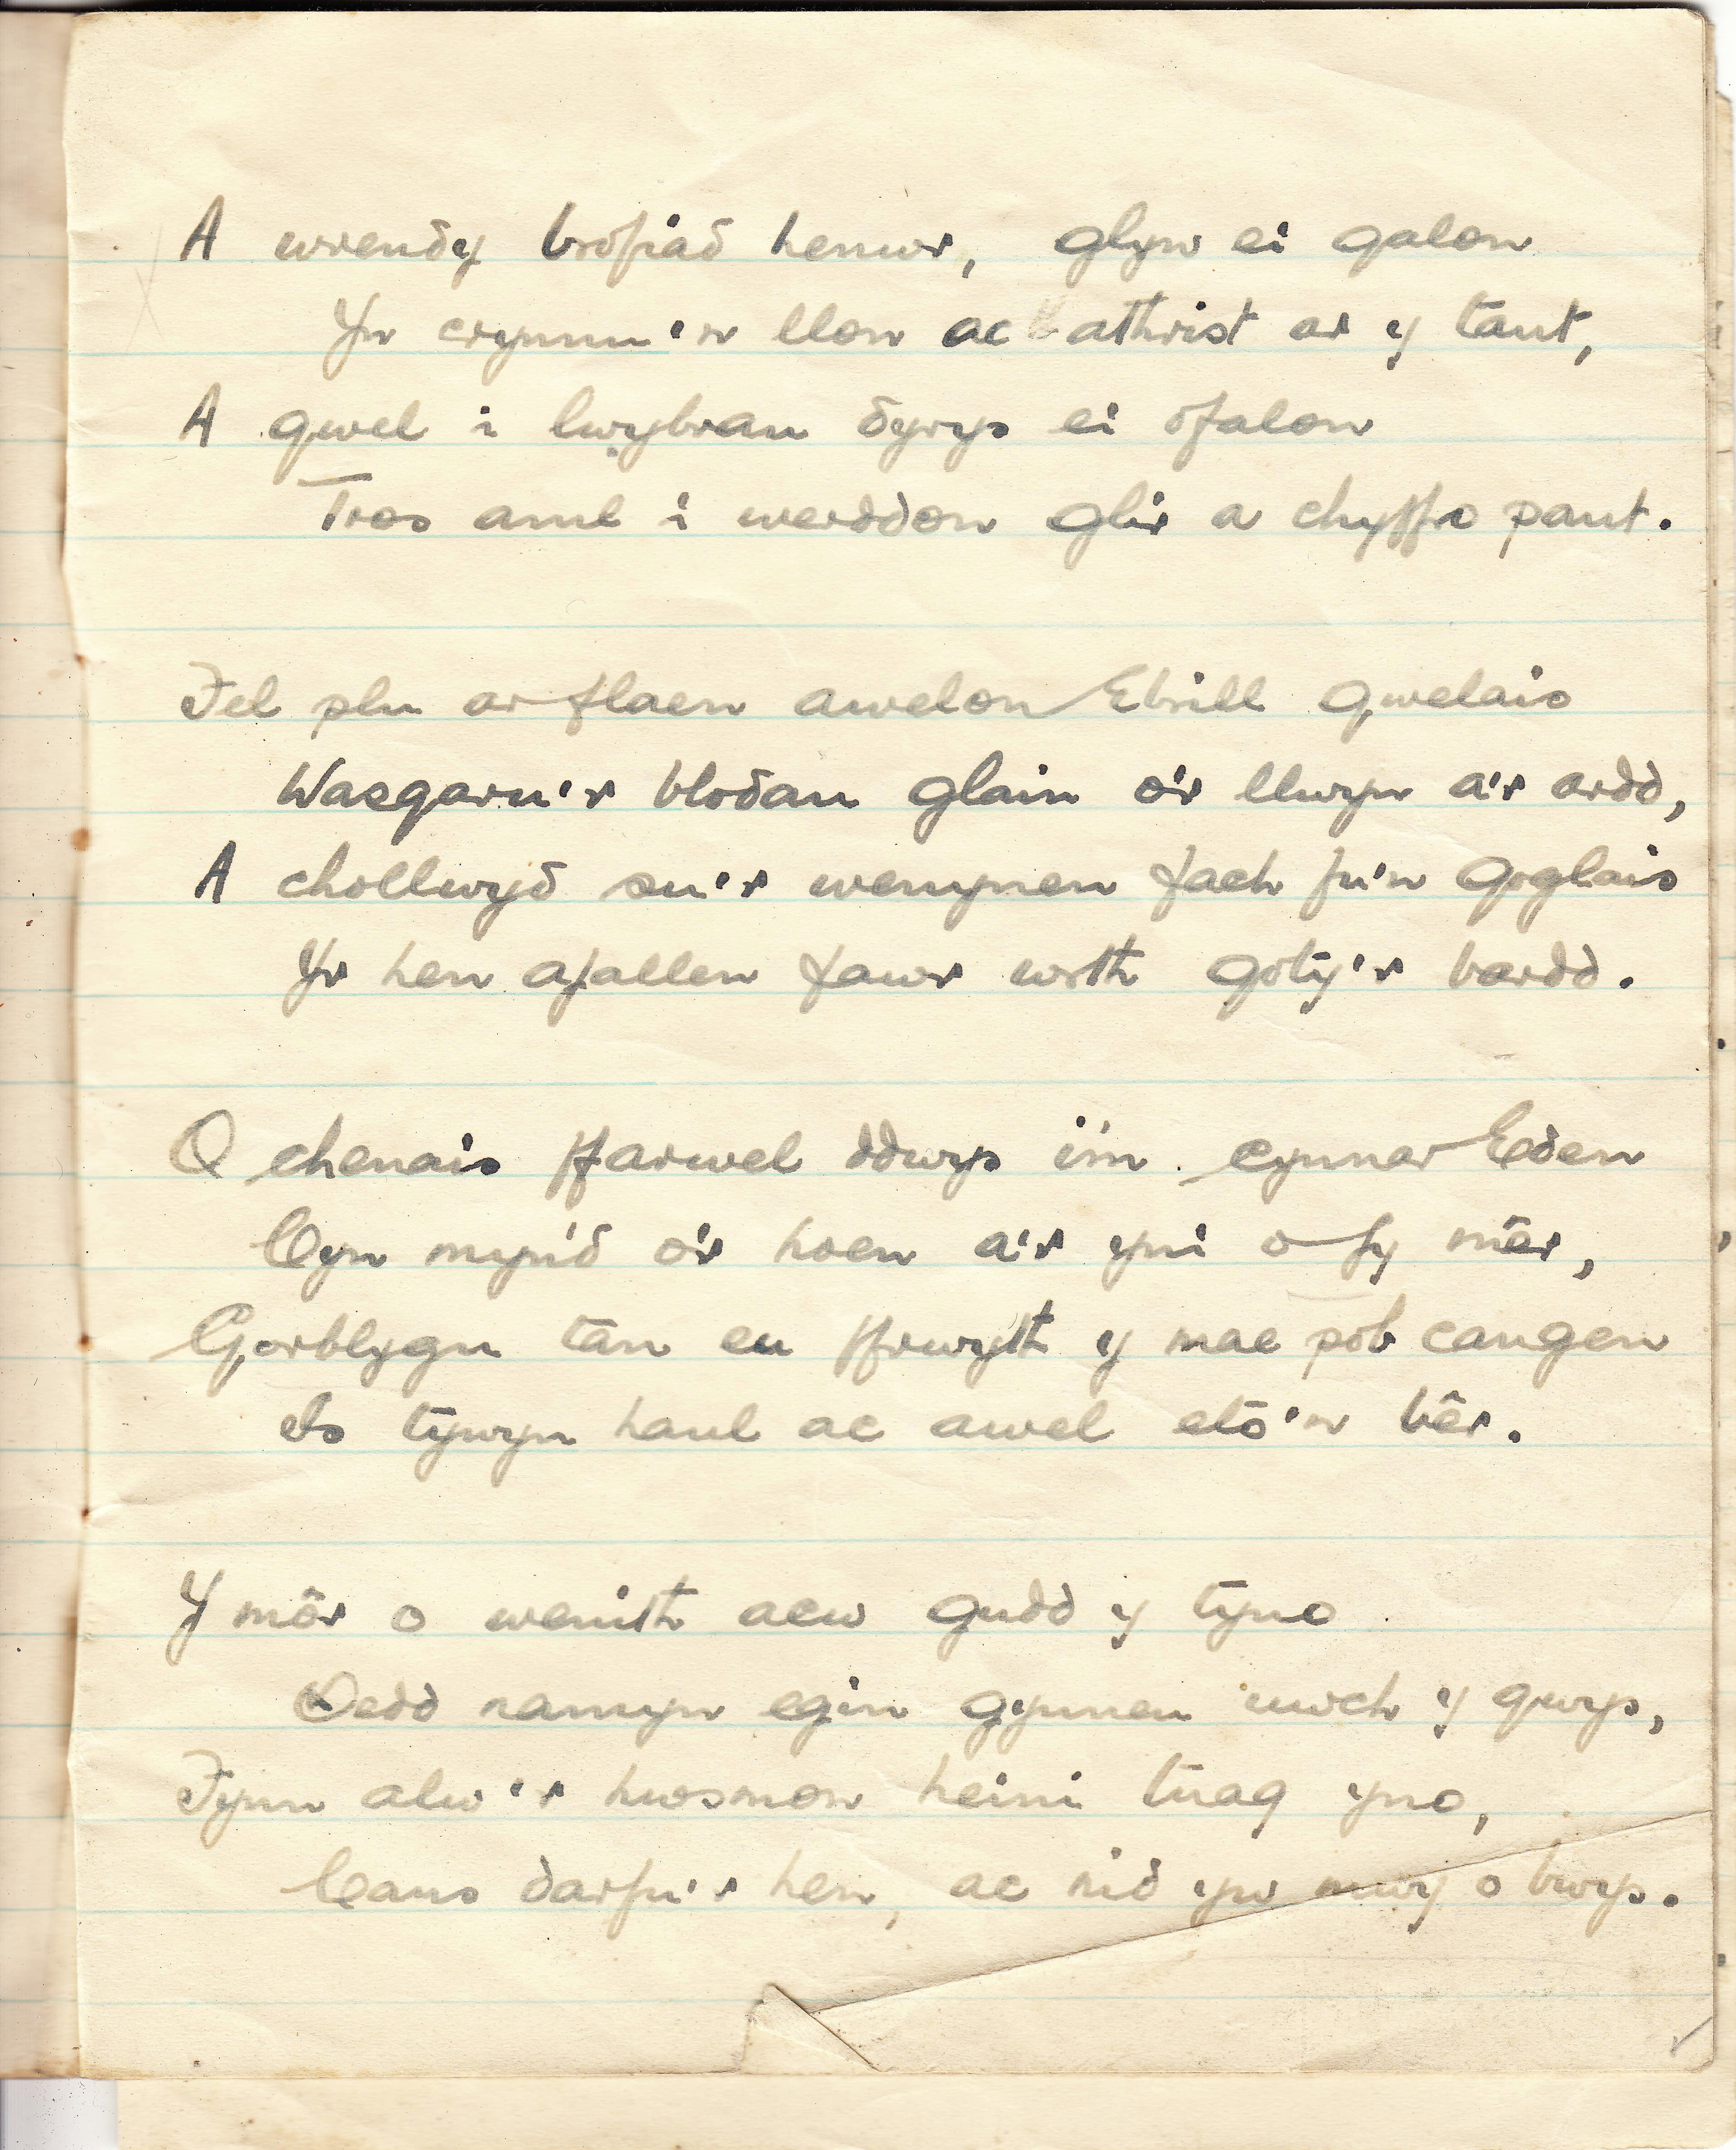 A wrendy brofiad henwr, glyw ei galon
Yn crynnu'n llon ac athrist ar y tant,
A gwel i lwybrau dyrys ei ofalon
Tros aml i werddon glir a chyffro pant.
Fel plu ar flaen awelon Ebrill gwelais
Wasgaru'r blodau glain o'r llwyn a'r ardd,
A chollwyd su'r wenynen fach fu'n goglais
Yr hen afallen fawr wrth goty'r bardd.
O chenais ffarwel ddwys i'm cynnar Eden
Cyn myn'd o'r hoen a'r yni o fy mêr,
Gorblygu tan eu ffrwyth y mae pob cangen
Is tywyn haul ac awel eto'n bêr.
Y môr o wenith aew gudd y tyno
Oedd namyn egin gynneu uwch y gwys,
Fynn alw'r hwsmon heini tuag yno,
Cans darfu'r hen, ac nid yw mwy o bwys.